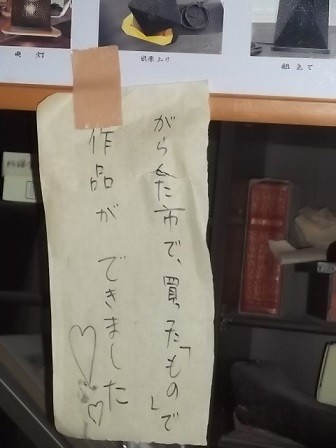 組立て
がらた市で、買った「もので」
作品ができました♡♡